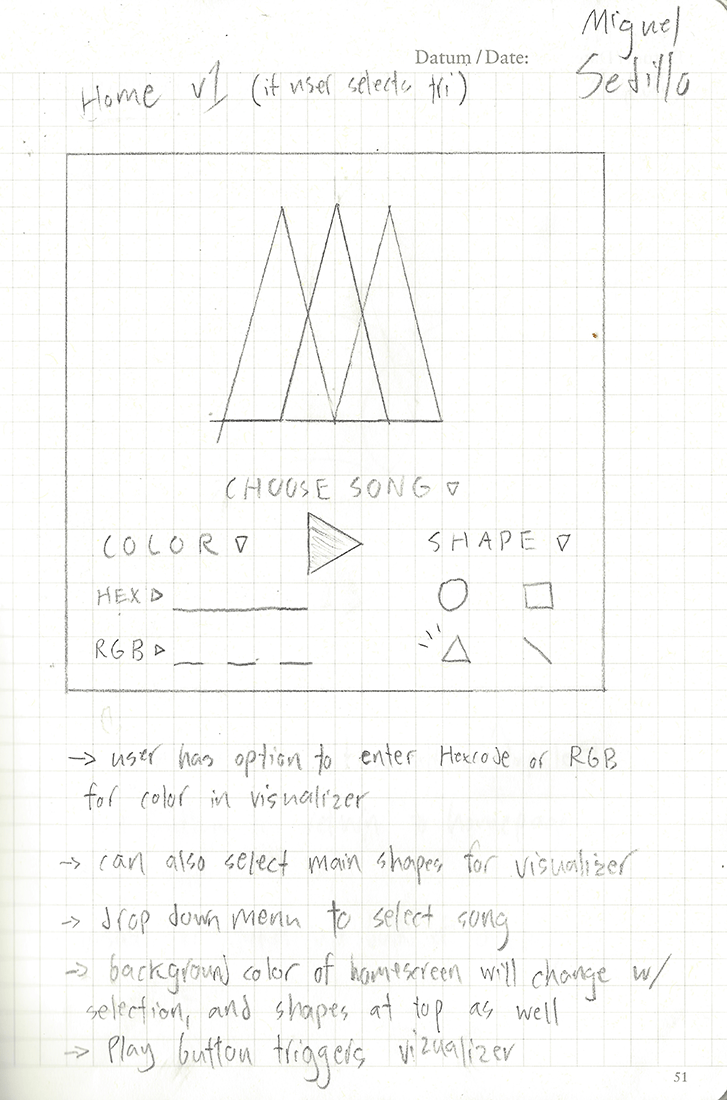 Miguel
Datum / Date:
Sedillo
Home v1 (if user selects tri)
CHOOSE SONG ▽
COLOR ▽
SHAPE ▽
HEX ▷
RGB ▷
→ user has option to enter Hexcode or RGB
for color in visualizer
→ can also select main shapes for visualizer
→ drop down menu to select song
→ background color of homescreen will change w/
selection, and shapes at top as well
→ Play button triggers vizualizer
51